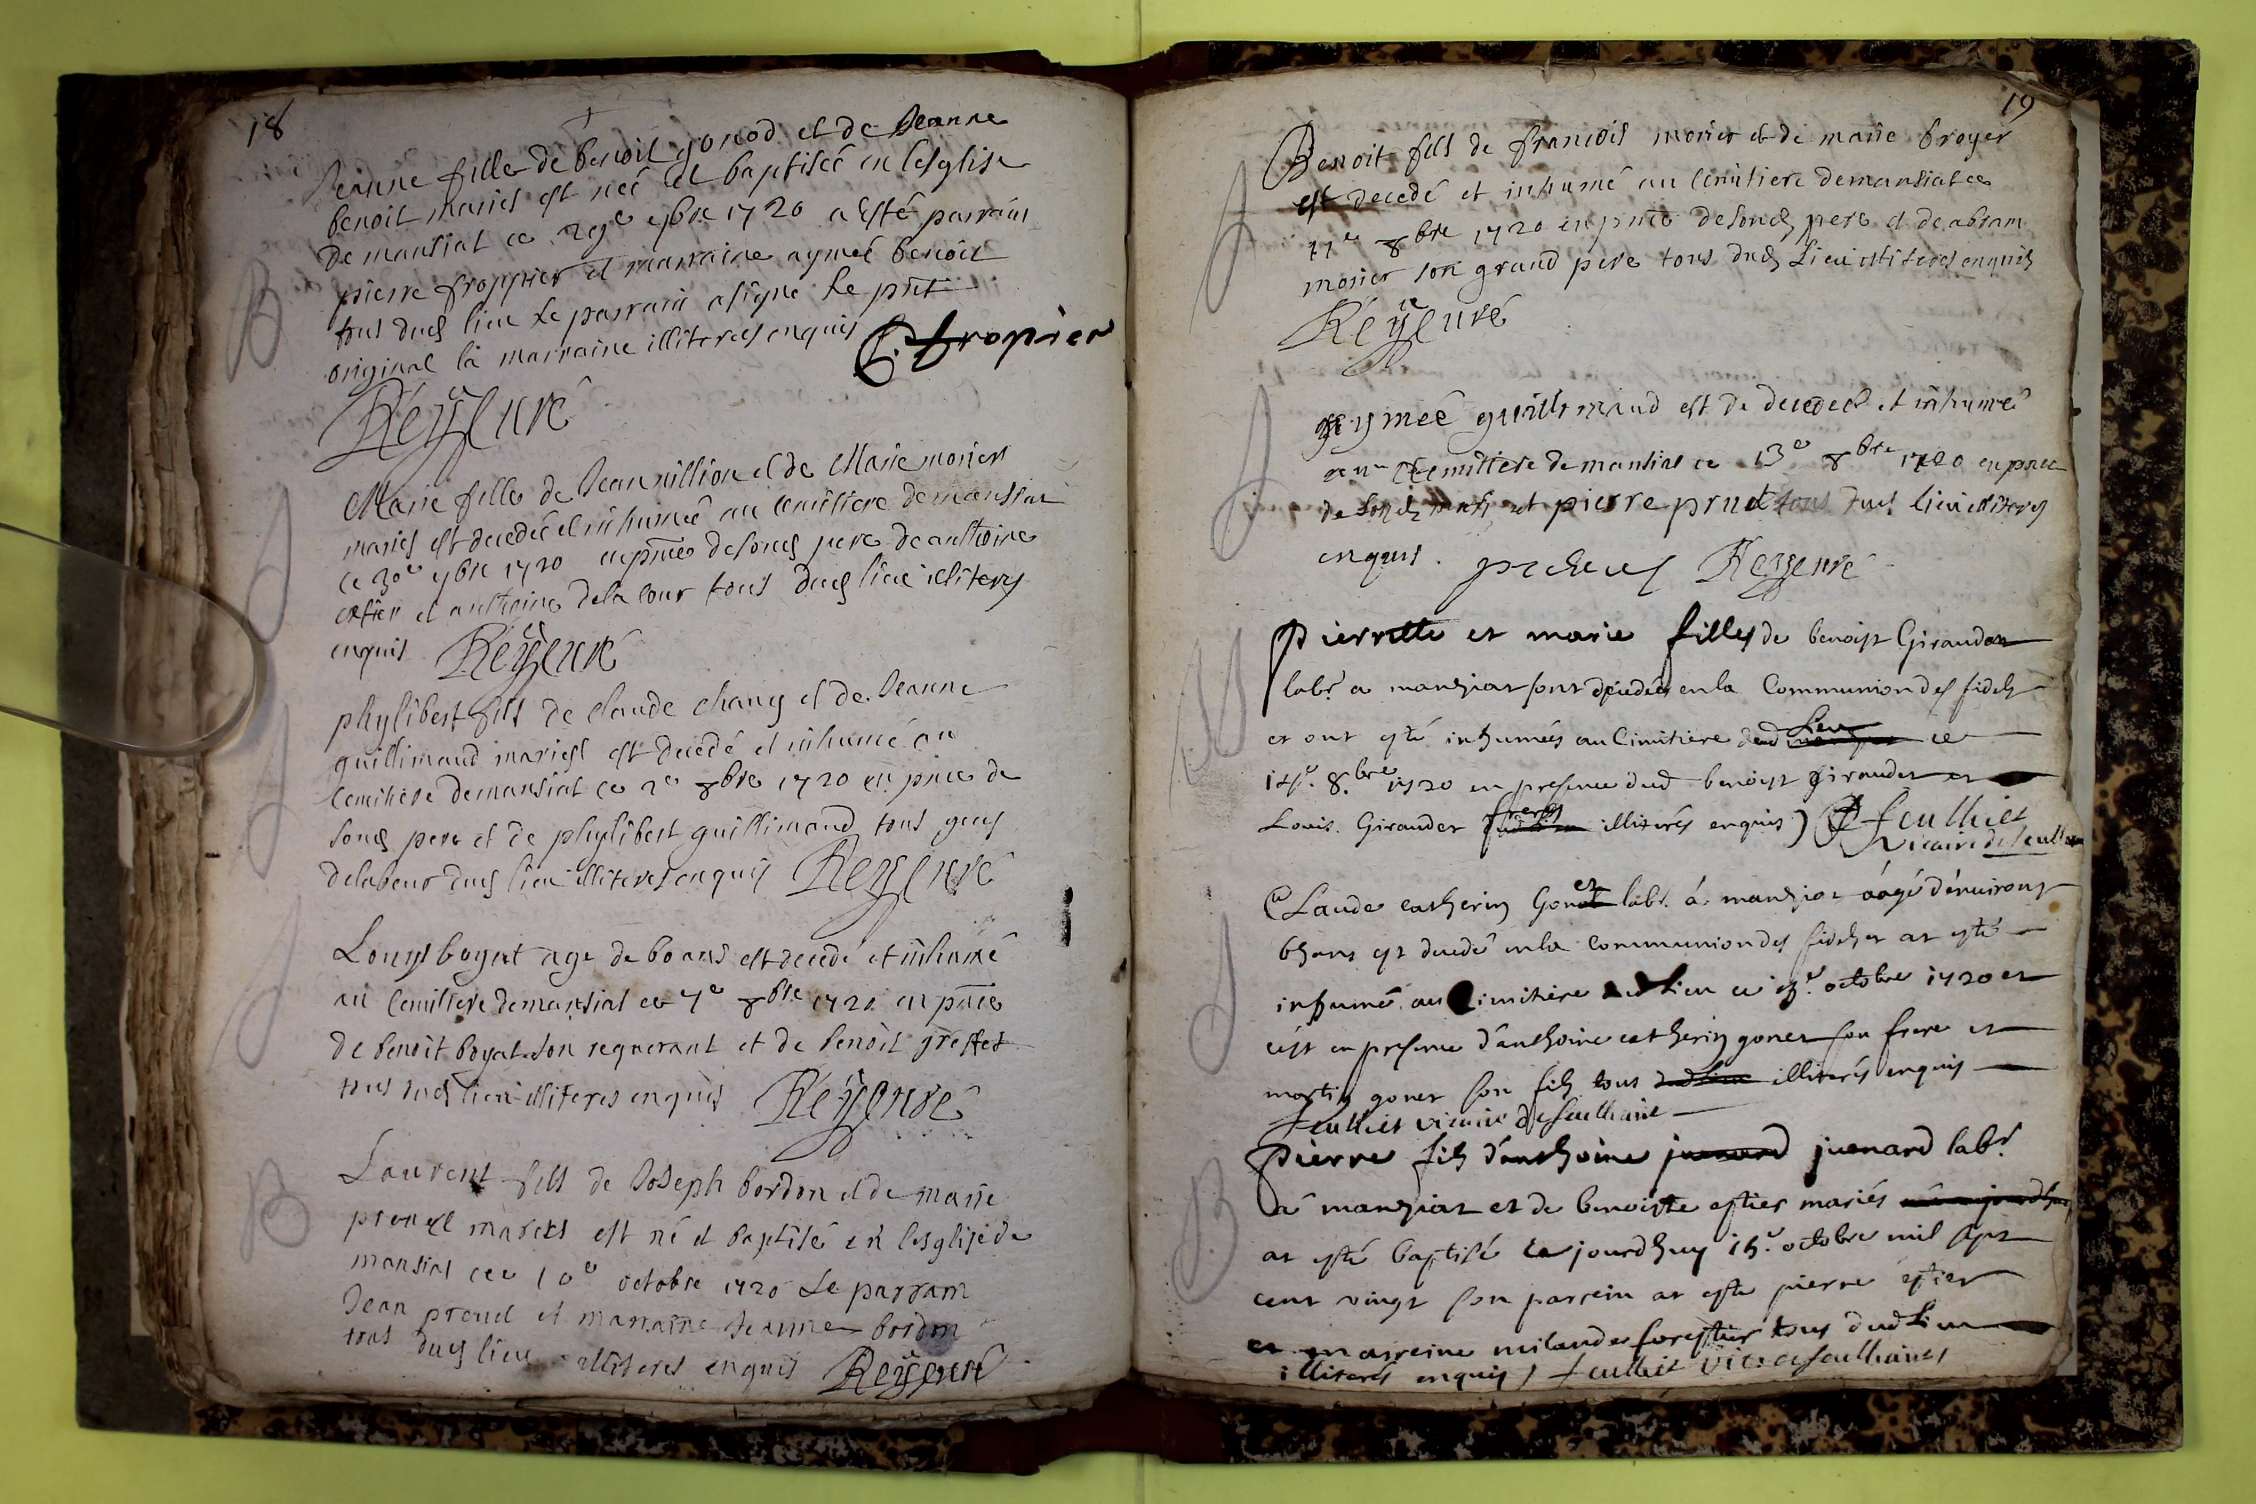 18
Jeanne fille de benoit gonod et de Jeanne
benoit mariés est née et baptisée en lesglise
de mansiat ce 29e 7bre 1720 a esté parrain
pierre froppier et marraine aymeé benoit
tous dud lieu le parrain a signé le pnt
original la marraine illiteres enquis
P. fropier
B
Rey Curé
Marie fille de Jean million et de Marie morier
mariés est decedée et inhumeé au cemitiere de mansiat
ce 30e 7bre 1720 en pnce de sond pere de anthoine
estier et anthoine delacour tous dud lieu illiteres
enquis Rey Curé
phylibert fils de claude chany et de Jeanne
guillimaud mariés est decedé et inhumé au
cemitiere de mansiat ce 2e 8bre 1720 en pnce de
sond pere et de phylibert guillimaud tous gens
de labeur dud lieu illiteres enquis Rey Curé
Louys boyat age de 60 ans est decedé et inhumé
au cemitiere de mansiat ce 7e 8bre 1720 en pnce
de benoit boyat son requerant et de benoit greffet
tous dud lieu illiteres enquis Rey Curé
B
Laurent fils de Joseph bordon et de marie
preuel mariés est né et baptisé en lesglise de
mansiat ce 10e octobre 1720 Le parrain
Jean preuel et marraine Jeanne bordon
tous dud lieu illiteres enquis Rey Curé
19
Benoit fils de francois morier et de marie broyer
est decedé et inhumé au cemitiere de mansiat ce
11e 8bre 1720 en pnce de sond pere et de abram
morier son grand pere tous dud lieu illiteres enquis
Rey Curé
aymeé guillimaud est decedeé et inhumeé
au Cemitiere de mansiat ce 13e 8bre 1720 en pnce
de et pierre prud tous dud lieu illiteres
enquis. Rey Curé
Pierrette et marie filles de benoist Giraudet
labr a manziat sont décedées en la Communion des fidels
et ont esté inhumées au Cimitière dud lieu ce
14e. 8.bre 1720 en presence dud benoist giraudet et
Louis Giraudet freres illiterés enquis) feulliet
vicaire
Claude catherin Gonet labr. á manziat áagé d'enuirons
ans est decedé en la communion des fideles et at esté
inhumé au Cimitière dud lieu ce 15e. octobre 1720 et
c'est en presence d'anthoine catherin gonet son frere et
martin gonet son fils tous illiterés enquis
feulliet vicaire
B
Pierre fils d'anthoine juenard labr.
á manziat et de benoiste estier mariés
at esté baptisé ce jourdhuy 15e. octobre mil sept
cent vingt son parrein at esté pierre estier
et marreine milande forestier tous dud lieu
illiterés enquis) feulliet vic.